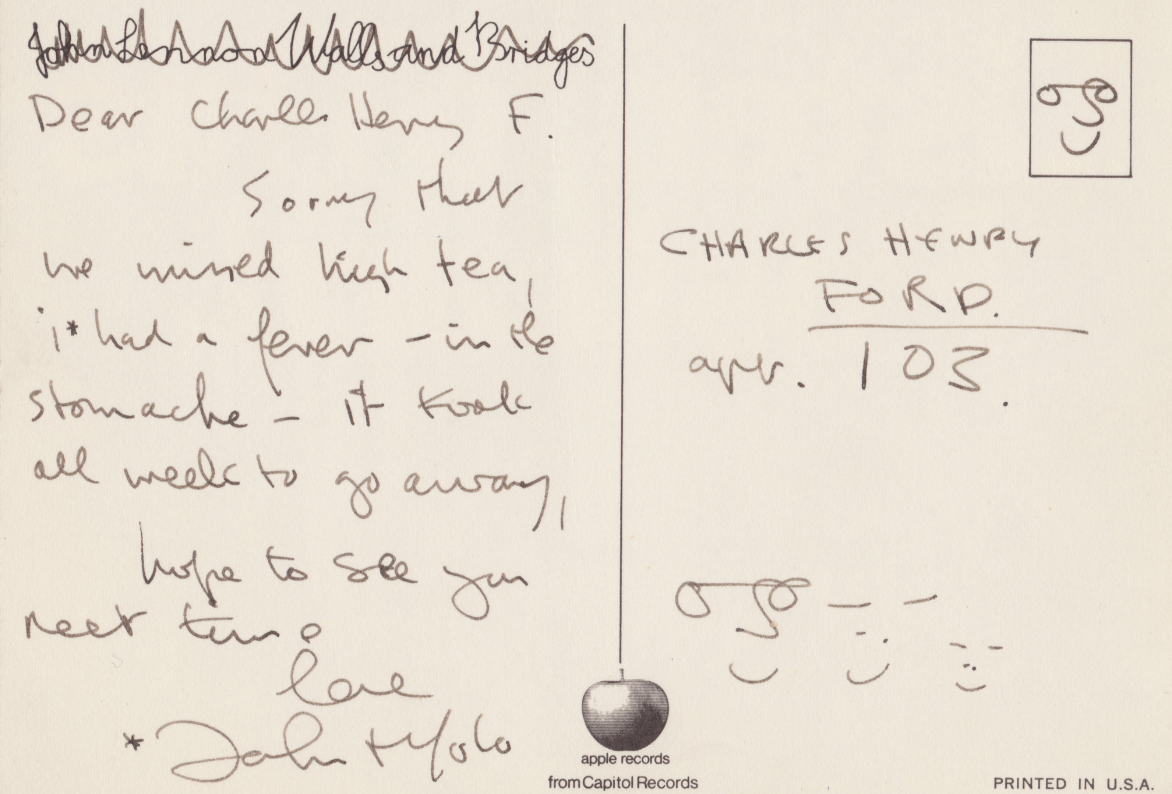 John Lennon Walls and Bridges
Dear Charles Henry F.
Sorry that
we missed high tea,
i* had a fever – in the
stomache – it took
all week to go away,
hope to see you
next time
love
* John + Yoko
CHARLES HENRY
FORD.
apt. 103.
apple records
from Capitol Records
PRINTED IN U.S.A.